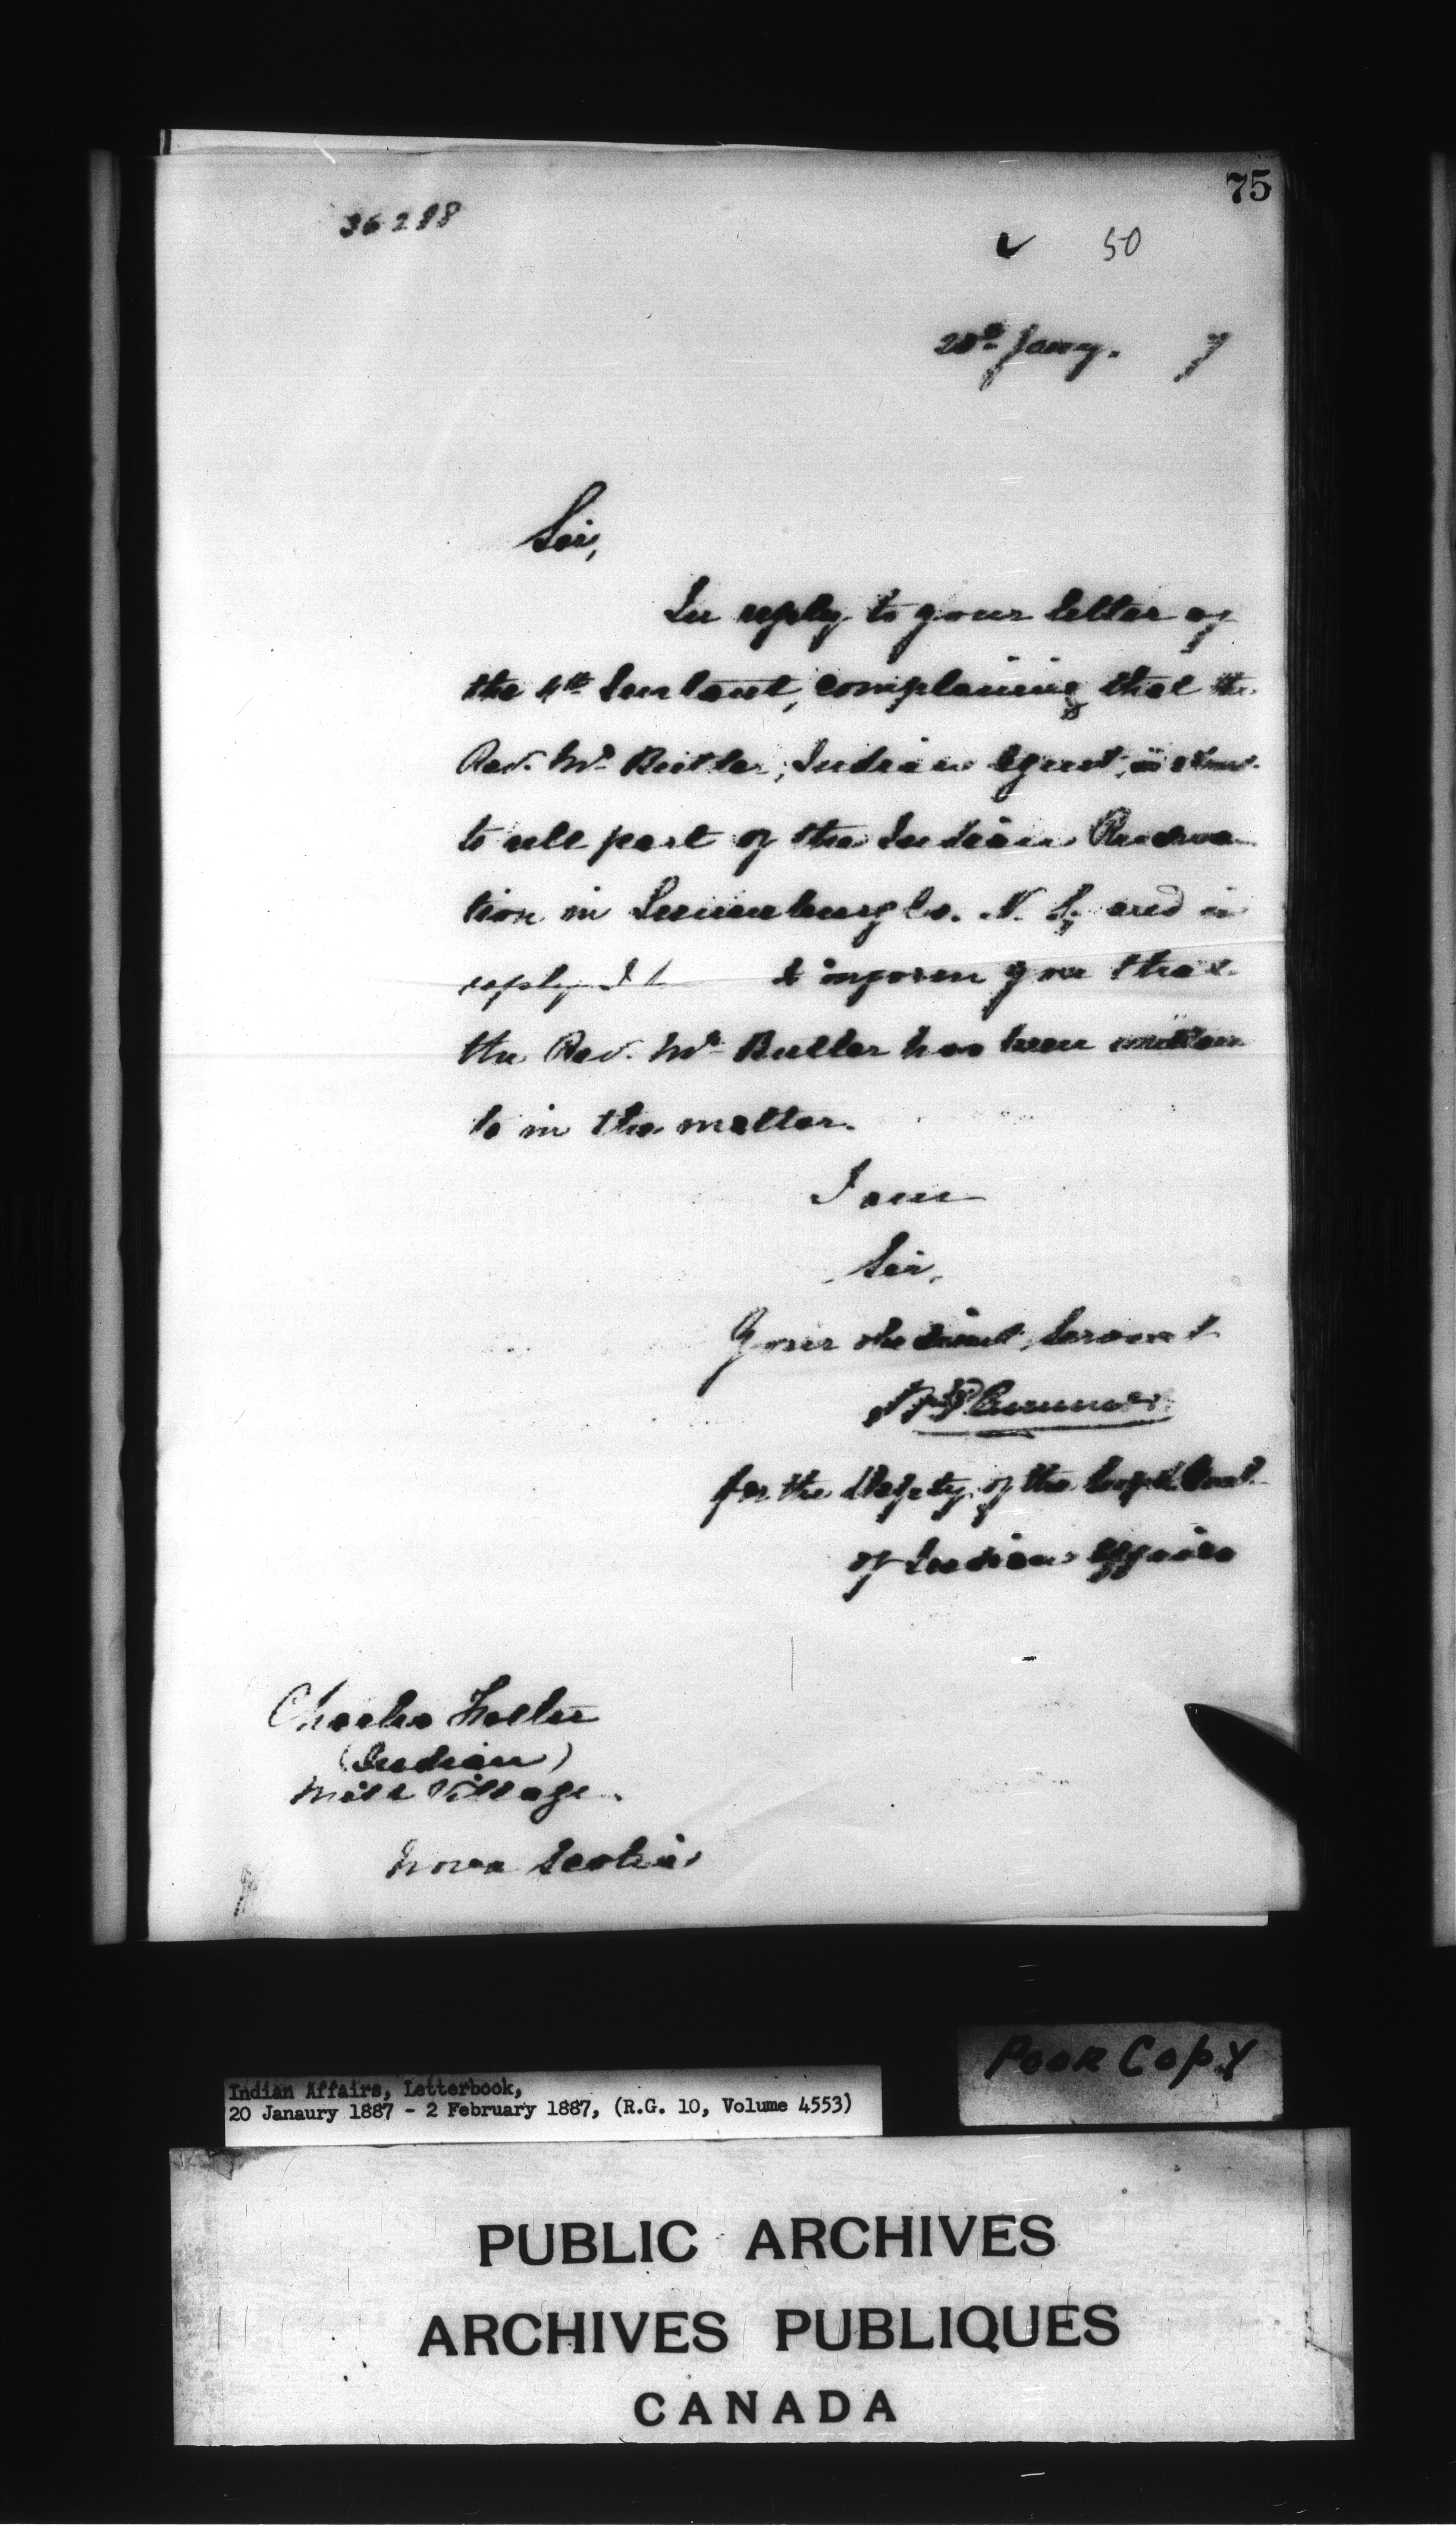 75
36288
50
20th Jany. 7
Sir,
In reply to your letter of
the 4th Instant, complaining that the
Rev. Mr Butler, Indian Agent,
to sell part of the Indian Reserva
tion in Lunenburg Co. N. S., and in
reply I to inform you that
the Rev. Mr Butler has been written
to in the matter.
I am
Sir,
Your obedient Servant
for the Deputy of the Supt Genl
of Indian Affairs
Charles
(Indian)
Mill Village.
Nova Scotia
Poor Copy
Indian Affairs, Letterbook,
20 Janaury 1887 - 2 February 1887, (R.G. 10, Volume 4553)
PUBLIC ARCHIVES
ARCHIVES PUBLIQUES
CANADA